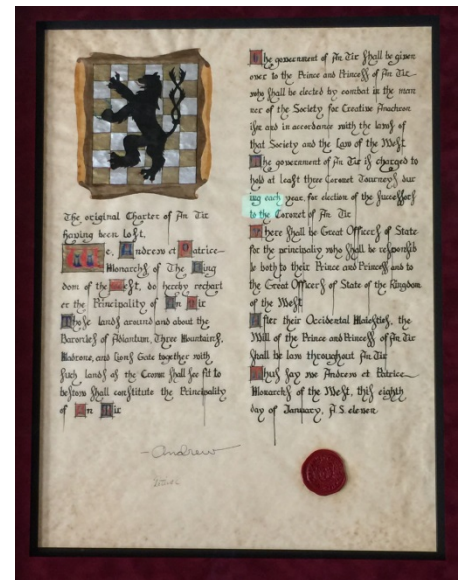 The original Charter of An Tir
having been lost,
We, Andrew et Patrice
Monarchs of The King
dom of the West, do hereby rechart
er the Principality of An Tir
Those lands around and about the
Baronies of Adiantum, Three Mountains,
Madrone, and Lions Gate together with
such lands of the Crown shall see fit to
bestow shall constitute the Principality
of An Tir
-Andrew
The government of An Tir shall be given
over to the Prince and Princess of An Tir
who shall be elected by combat in the man
ner of the Society for Creative Anachron
ism and in accordance with the laws of
that Society and the Law of the West
The government of An Tir is charged to
hold at least three Coronet Tourneys dur
ing each year, for election of the successors
to the Coronet of An Tir
There shall be Great Officers of State
for the principality who shall be responsib
le both to their Prince and Princess and to
the Great Officers of State of the Kingdom
of the West
After their Occidental Majesties, the
Will of the Prince and Princess of An Tir
shall be law throughout An Tir
Thus say we Andrew et Patrice
Monarchs of the West, this eighth
day of January, A.S. eleven